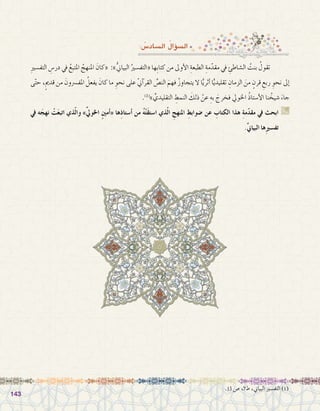 السؤال السادس
تقولُ بنتُ الشاطئِ في مقدّمة الطبعة الأولى من كتابها «التفسيرُ البيانيّ»: «كانَ المنهجُ المتّبعُ في درسِ التفسيرِ
إلى نحوِ ربعِ قرنٍ من الزمانِ تقليديًّا أثريًّا لا يتجاوزُ فهمَ النصِّ القرآنيِّ على نحوِ ما كانَ يفعلُ المفسرونَ من قديمٍ، حتّى
جاءَ شيخُنا الأستاذُ الخوليّ فخرجَ بهِ عنْ ذلك النمط التقليديّ»(١).
ابحث في مقدّمة هذا الكتاب عن ضوابط المنهج الّذي استقتْهُ من أستاذها «أمينِ الخوليّ» والّذي اتبعَتْ نهجَه في
تفسيرها البيانيّ.
(١) التفسير البياني،
143